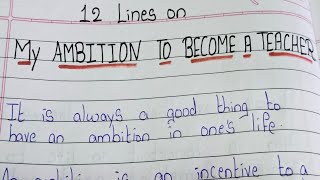 12 Lines on
My AMBITION TO BECOME A TEACHER
It is always a good thing to
have an ambition in one's life.
is an incentive to a